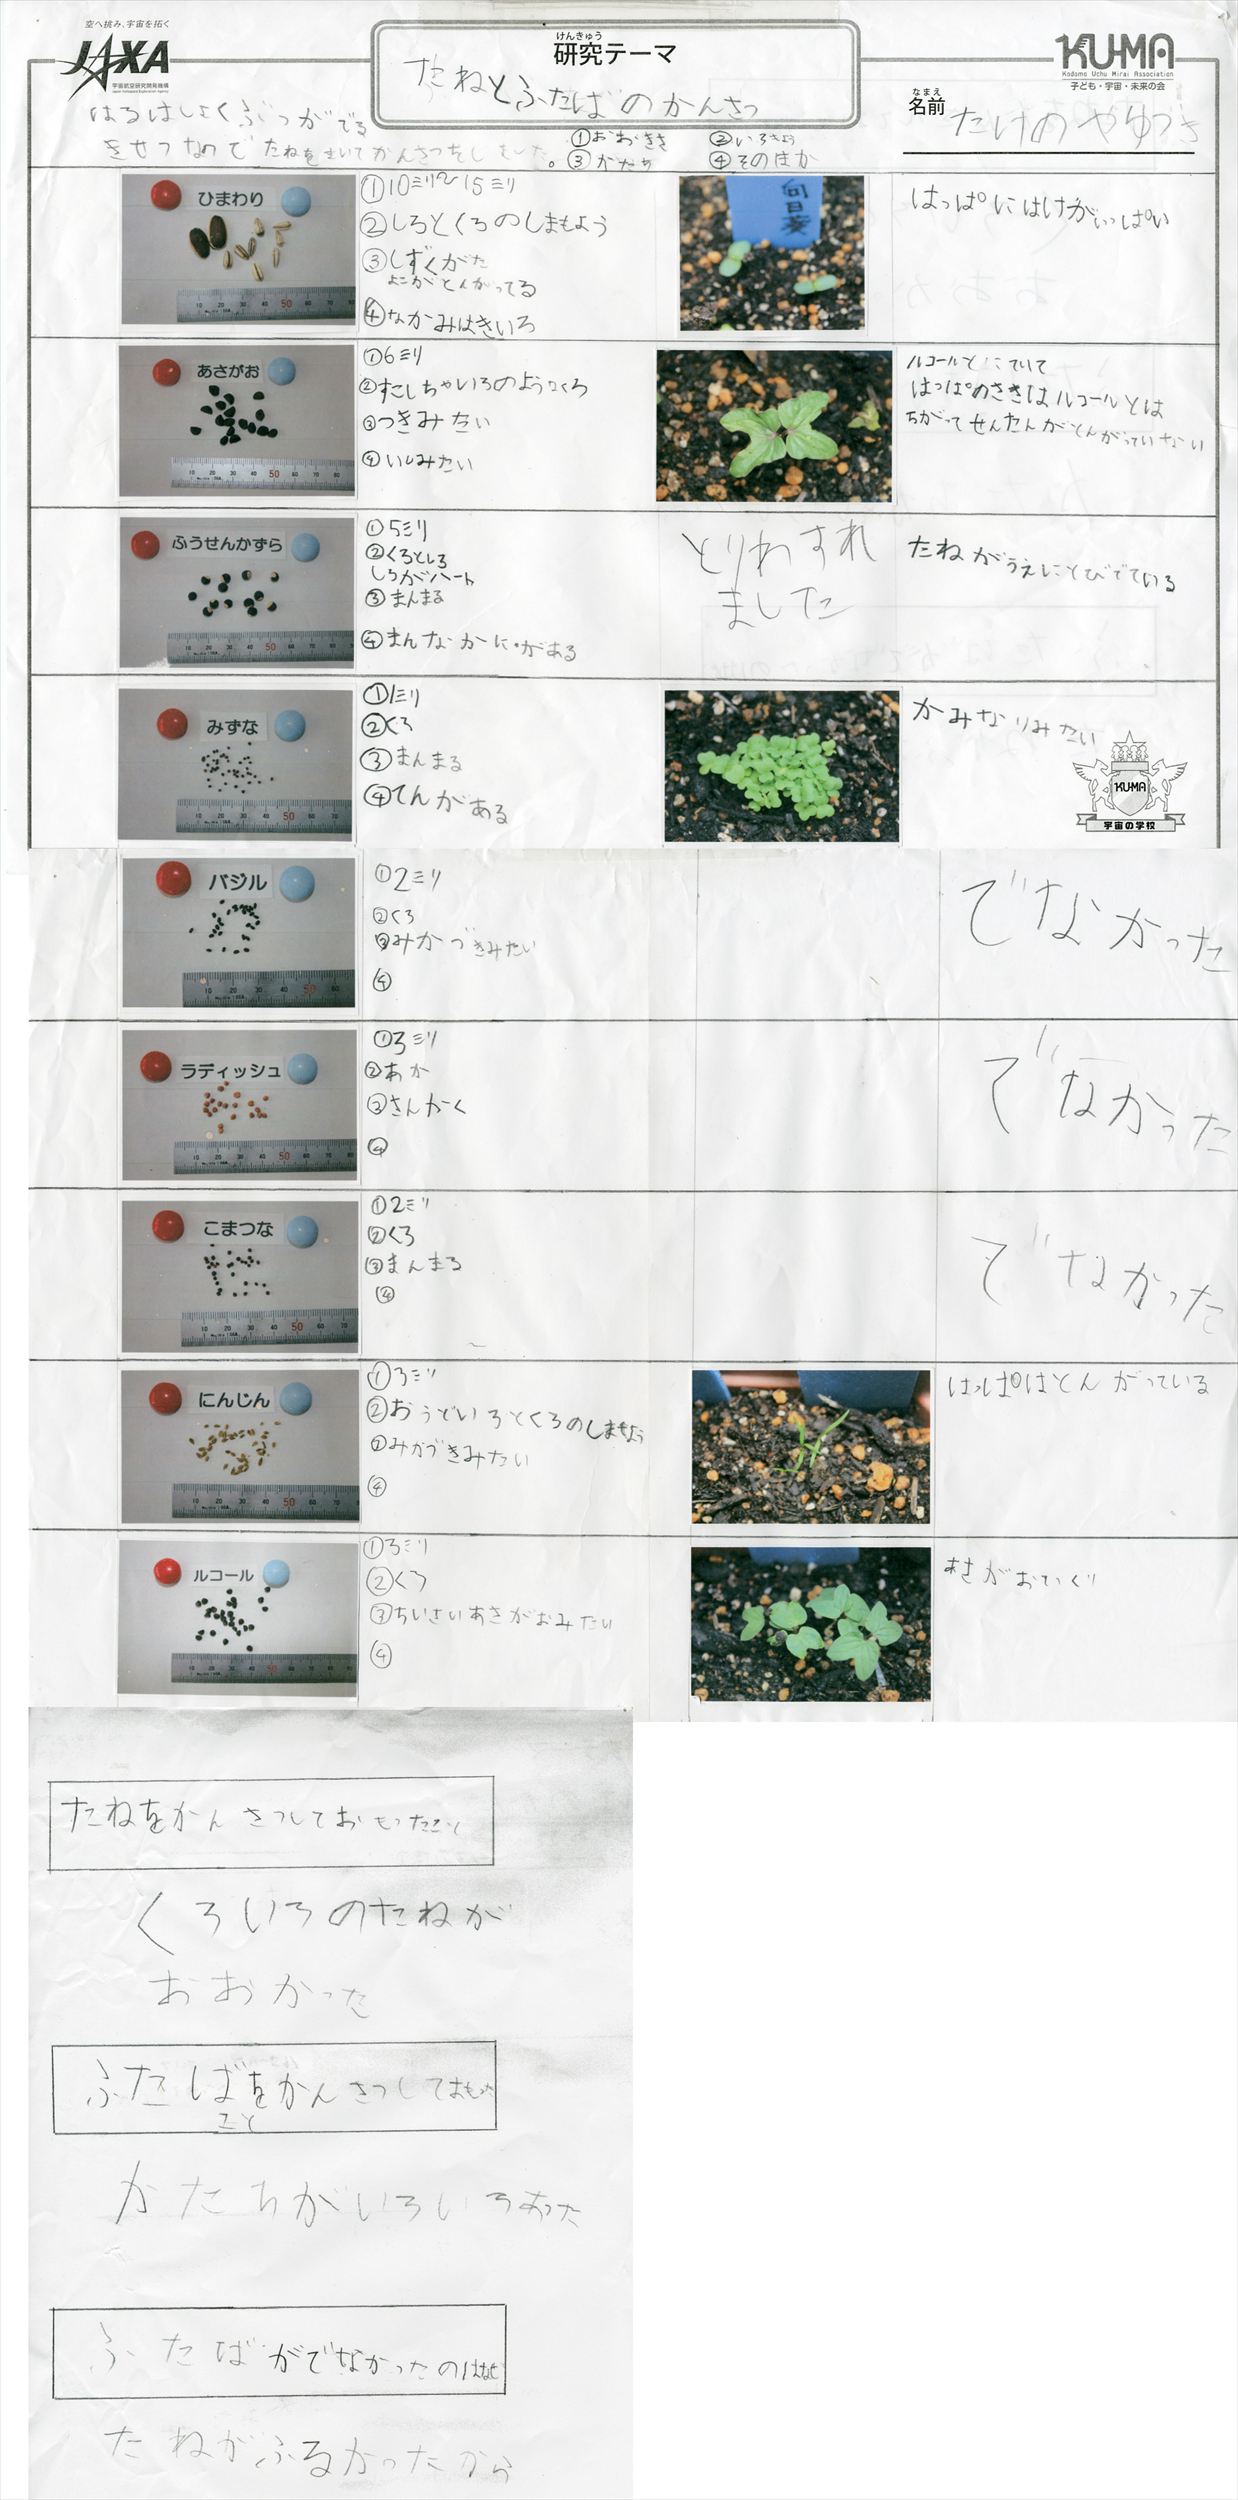 空へ挑み、宇宙を拓く
JAXA
宇宙航空研究開発機構
Japan Aerospace Exploration Agency
けんきゅう
研究テーマ
たねとふたばのかんさつ
KU-MA
Kodomo Uchu Mirai Association
子ども・宇宙・未来の会
なまえ
名前
たけのやゆづき
はるはしょくぶつがでる
きせつなのでたねをまいてかんさつをしました。
①おおきさ ②いろもよう
③かたち ④そのほか
ひまわり
①10ミリ～15ミリ
②しろとくろのしまもよう
③しずくがた
よこがとんがってる
④なかみはきいろ
向日葵
はっぱにはけがいっぱい
あさがお
①6ミリ
②すこしちゃいろのようなくろ
③つきみたい
④いしみたい
ルコールとにていて
はっぱのさきはルコールとは
ちがってせんたんがとんがっていない
ふうせんかずら
①5ミリ
②くろとしろ
しろがハート
③まんまる
④まんなかに・がある
とりわすれ
ました
たねがうえにとびでている
みずな
①1ミリ
②くろ
③まんまる
④てんがある
かみなりみたい
KU-MA
宇宙の学校
バジル
①2ミリ
②くろ
③みかづきみたい
④
でなかった
ラディッシュ
①3ミリ
②あか
③さんかく
④
でなかった
こまつな
①2ミリ
②くろ
③まんまる
④
でなかった
にんじん
①3ミリ
②おうどいろとくろのしまもよう
③みかづきみたい
④
はっぱはとんがっている
ルコール
①3ミリ
②くろ
③ちいさいあさがおみたい
④
あさがおていくり
たねをかんさつしておもったこと
くろいろのたねが
おおかった
ふたばをかんさつしておもった
こと
かたちがいろいろあった
ふたばがでなかったのはなぜ
たねがふるかったから